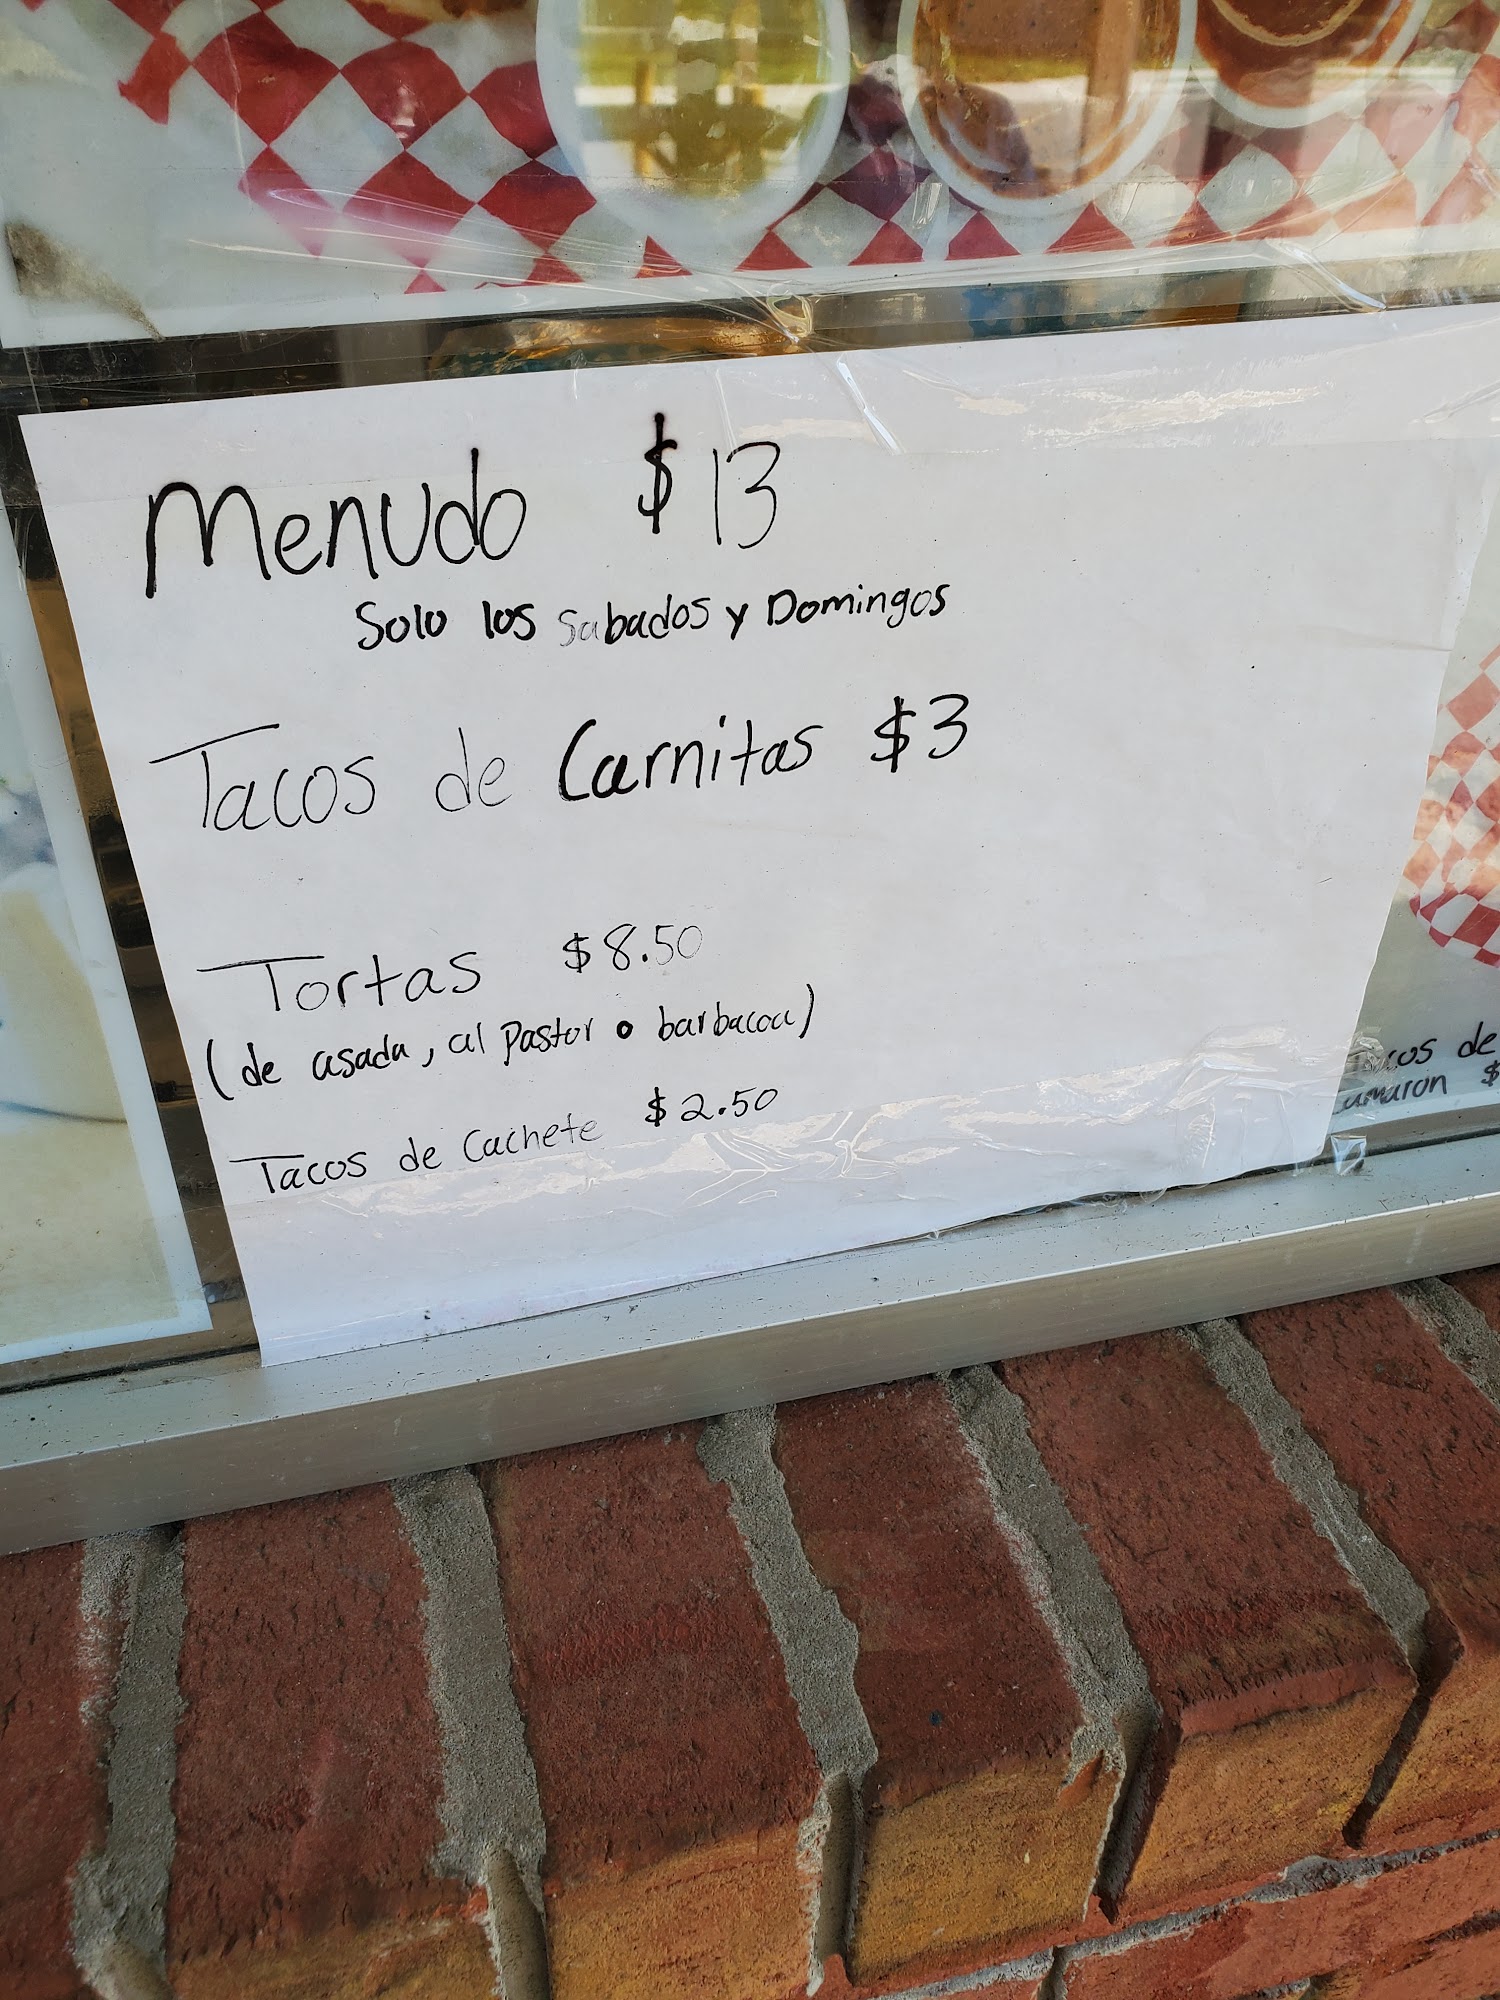 Menudo $13
Solo los Sabados y Domingos
Tacos de Carnitas $3
Tortas $8.50
(de asada, al pastor o barbacoa)
Tacos de Cachete $2.50
de
$